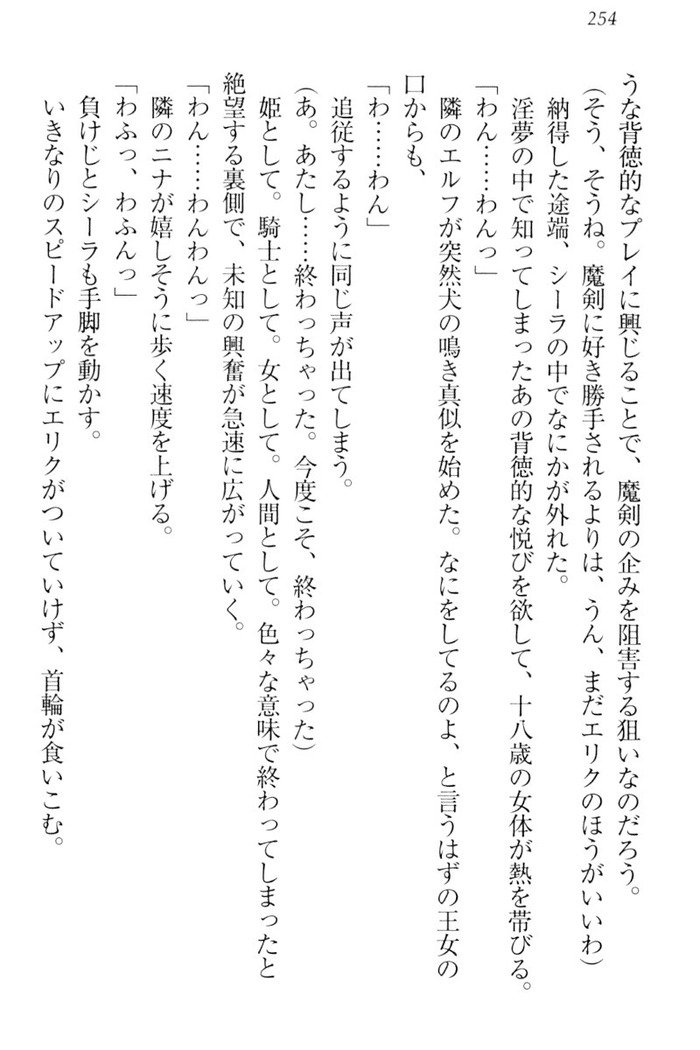 254
うな背徳的なプレイに興じることで、魔剣の企みを阻害する狙いなのだろう。
(そう、そうね。魔剣に好き勝手されるよりは、うん、まだエリクのほうがいいわ)
納得した途端、シーラの中でなにかが外れた。
淫夢の中で知ってしまったあの背徳的な悦びを欲して、十八歳の女体が熱を帯びる。
「わん……わんっ」
隣のエルフが突然犬の鳴き真似を始めた。なにをしてるのよ、と言うはずの王女の
口からも、
「わ……わん」
追従するように同じ声が出てしまう。
(あ。あたし……終わっちゃった。今度こそ、終わっちゃった)
姫として。騎士として。女として。人間として。色々な意味で終わってしまったと
絶望する裏側で、未知の興奮が急速に広がっていく。
「わん……わんわんっ」
隣のニナが嬉しそうに歩く速度を上げる。
「わふっ、わふんっ」
負けじとシーラも手脚を動かす。
いきなりのスピードアップにエリクがついていけず、首輪が食いこむ。